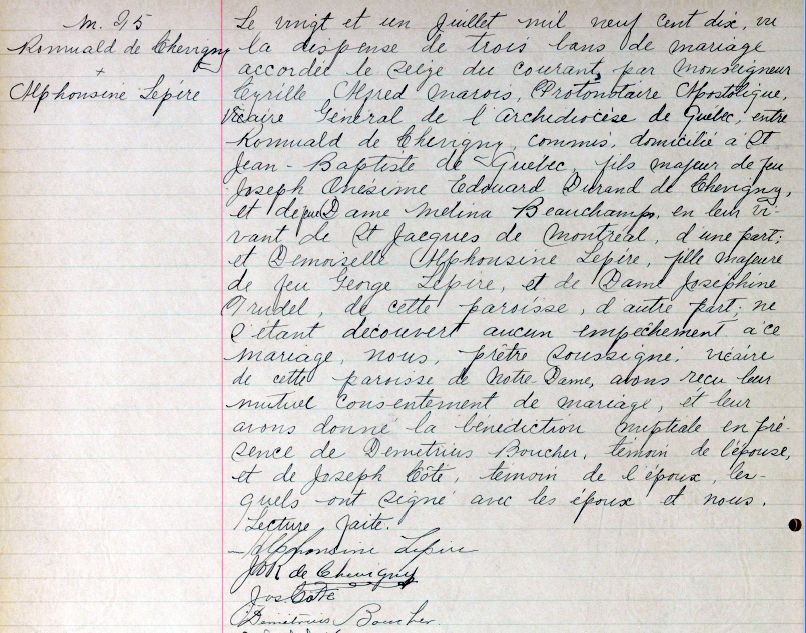 M. 95
Romuald de Chevigny
+
Alphonsine Lepire
Le vingt et un Juillet mil neuf cent dix, vu
la dispense de trois bans de mariage
accordée le seize du courant, par Monseigneur
Cyrille Alfred Marois, Protonotaire Apostolique,
Vicaire Général de l'Archidiocèse de Québec, entre
Romuald de Chevigny, commis, domicilié à St
Jean-Baptiste de Québec, fils majeur de feu
Joseph Onésime Edouard Durand de Chevigny,
et de feu Dame Melina Beauchamp, en leur vi-
vant de St Jacques de Montréal, d'une part;
et Demoiselle Alphonsine Lepire, fille majeure
de feu George Lepire, et de Dame Josephine
Trudel, de cette paroisse, d'autre part; ne
s'étant découvert aucun empêchement à ce
mariage, nous, prêtre soussigné, vicaire
de cette paroisse de Notre-Dame, avons reçu leur
mutuel consentement de mariage, et leur
avons donné la bénédiction nuptiale en pré-
sence de Demetrius Boucher, témoin de l'épouse,
et de Joseph Côté, témoin de l'époux, les-
quels ont signé avec les époux et nous.
Lecture faite.
Alphonsine Lepire
de Chevigny
Jos Coté
Demétrius Boucher.